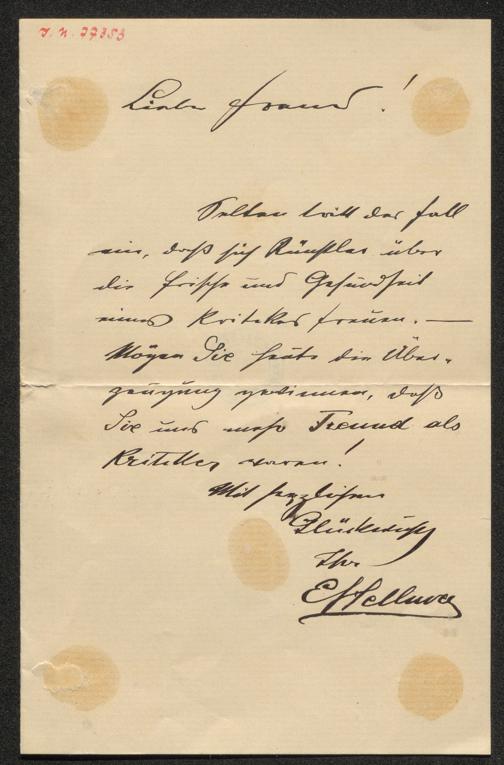 I. N. 77353
Lieber Freund!
Selten tritt der Fall
ein, daß sich Künstler über
die Frische und Gesundheit
eines Kritikers freuen. —
Mögen Sie heute die Über-
zeugung gewinnen, daß
Sie uns mehr Freund als
Kritiker waren!
Mit herzlichem
Glückwunsch
Ihr
E Hellmer